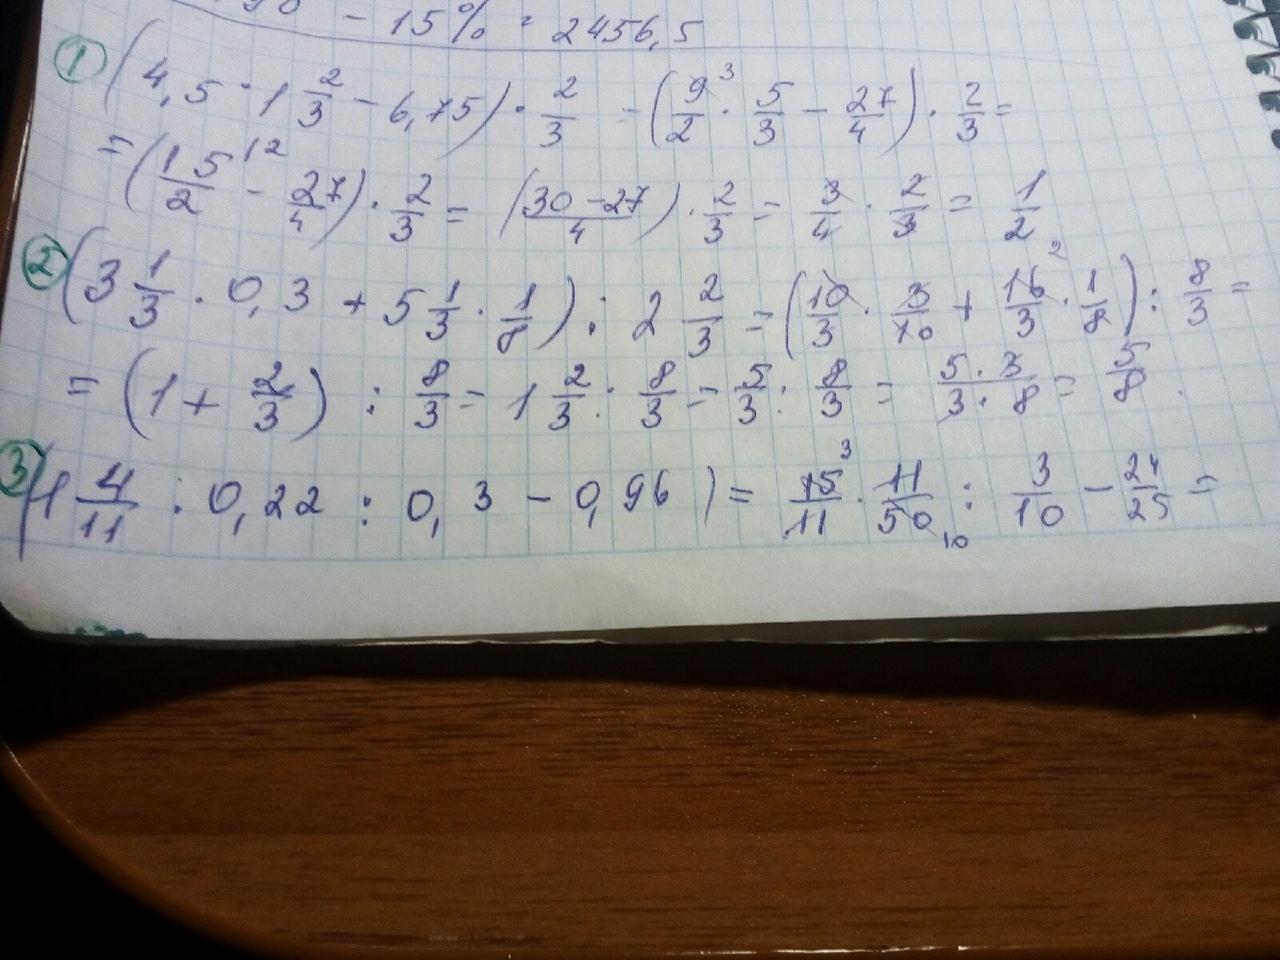 - 15% = 2456,5
1 (4,5 · 1 2/3 - 6,75) · 2/3 = (9/2 3 · 5/3 - 27/4) · 2/3 =
= (15/2 12 - 27/4) · 2/3 = (30-27/4) · 2/3 = 3/4 · 2/3 = 1/2
2 (3 1/3 · 0,3 + 5 1/3 · 1/8) : 2 2/3 = (10/3 · 3/10 + 16/3 2 · 1/8) : 8/3 =
= (1 + 2/3) : 8/3 = 1 2/3 : 8/3 = 5/3 : 8/3 = 5·3/3·8 = 5/8 .
3 (1 4/11 : 0,22 : 0,3 - 0,96) = 15/11 3 · 11/50 10 : 3/10 - 24/25 =